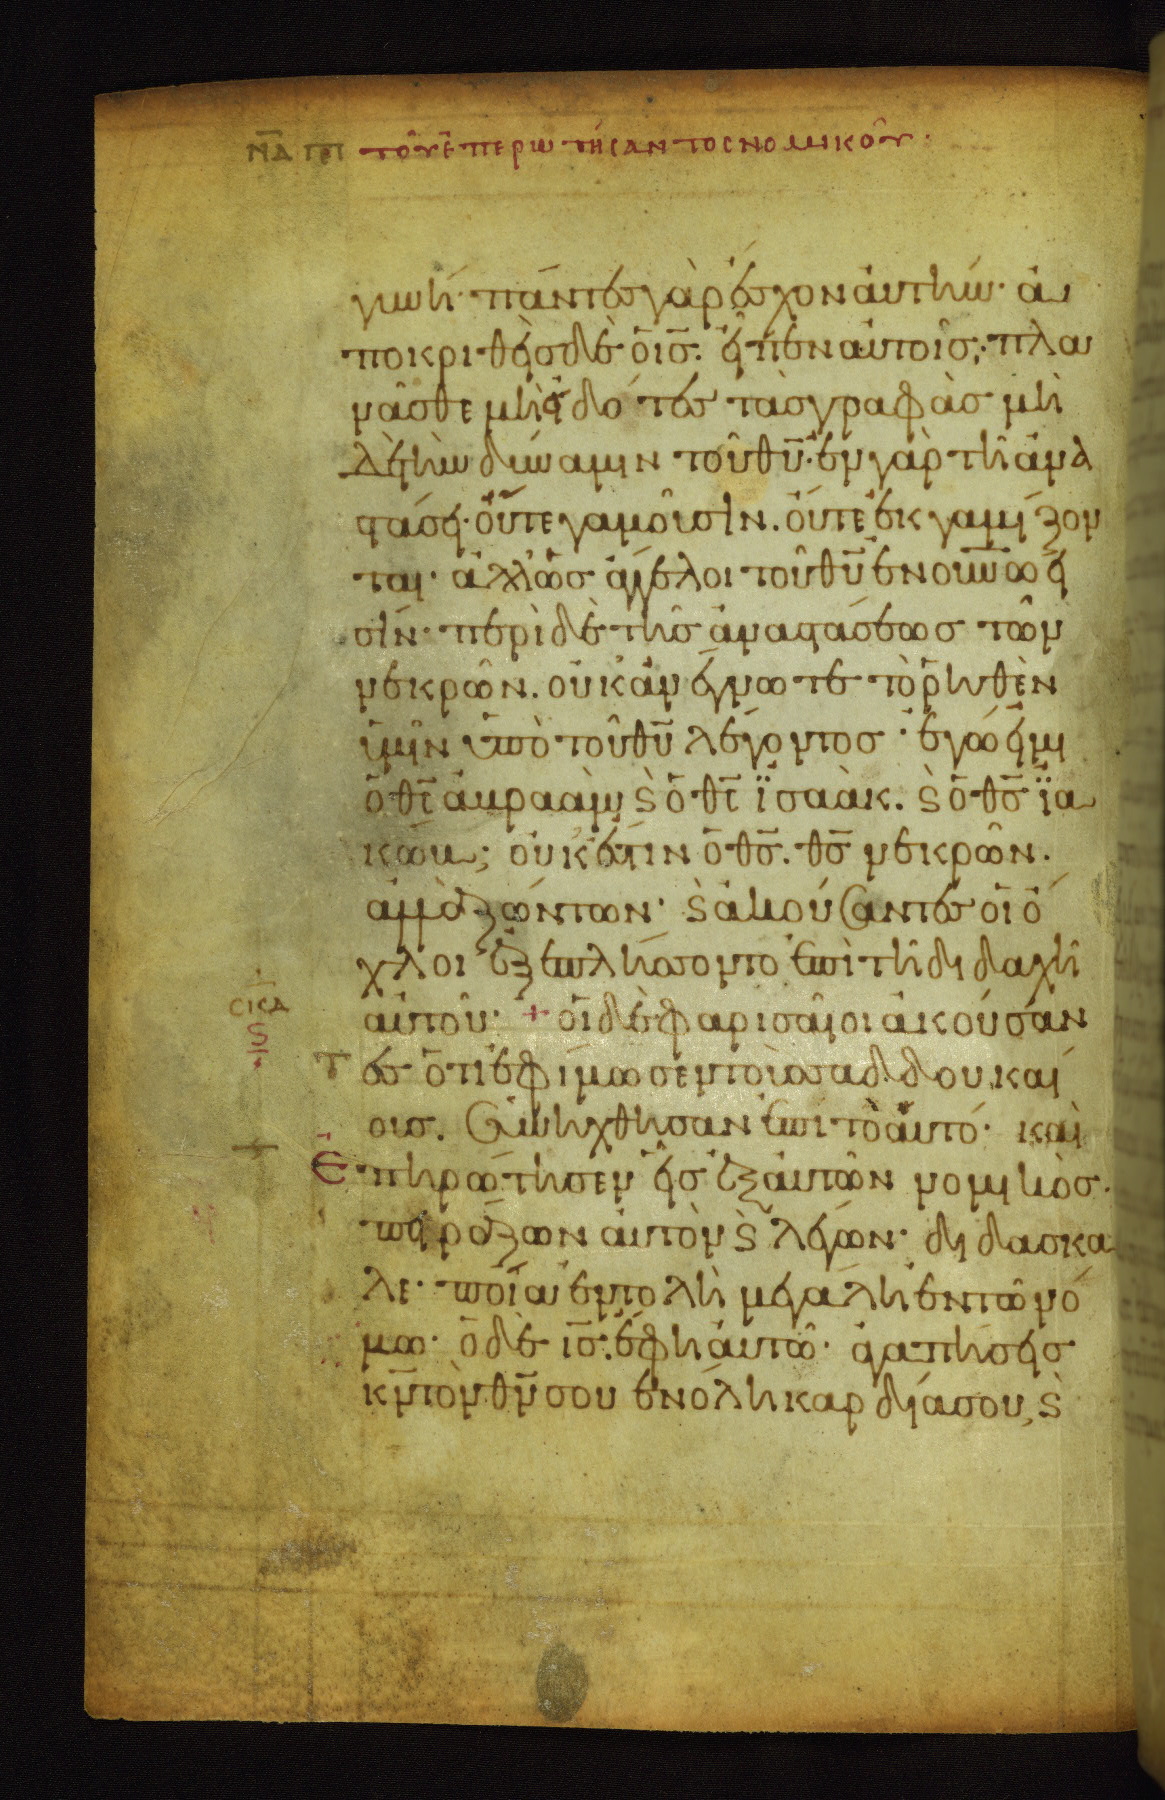 τοῦ ἐπερωτήσαντος νομικοῦ·
γυνή· πάντες γὰρ ἔσχον αὐτήν· ἀ
ποκριθεὶς δὲ ὁ ις̅. εἶπεν αὐτοῖς· πλα
νᾶσθε μὴ εἰδότες τὰς γραφὰς μὴ
δὲ τὴν δύναμιν τοῦ θυ̅· ἐν γὰρ τῆ ἀνα
στάσει· οὔτε γαμοῦσιν. οὔτε ἐκγαμίζον
ται· ἀλλ' ὡς ἄγγελοι τοῦ θυ̅ ἐν ουνω̅ εἰ
σίν· περὶ δὲ τῆς ἀναστάσεως τῶν
νεκρῶν. οὐκ ἀνέγνωτε τὸ ῥηθὲν
ὑμῖν ὑπὸ τοῦ θυ̅ λέγοντος· ἐγώ εἰμι
ὁ θς̅ ἀβραὰμ ϗ ὁ θς̅ ἰσαὰκ. ϗ ὁ θς̅ ἰα
κώβ; οὐκ ἔστιν ὁ θς̅. θς̅ νεκρῶν.
ἀλλὰ ζώντων· ϗ ἀκούσαντες οἱ ὄ
χλοι ἐξεπλήσσοντο ἐπὶ τῆ διδαχῆ
αὐτοῦ· + οἱ δὲ φαρισαῖοι ἀκούσαν
τες ὅτι ἐφίμωσεν τοὺς σαδδουκαί
ους. συνήχθησαν ἐπὶ τὸ αὐτό· καὶ
ἐπηρώτησεν εἷς ἐξ αὐτῶν νομικὸς.
πειράζων αὐτὸν ϗ λέγων· διδάσκα
λε· ποία ἐντολὴ μεγάλη ἐν τῶ νό
μω· ὁ δὲ ις̅. ἔφη αὐτῶ· ἀγαπήσεις
κν̅ τὸν θν̅ σου ἐν ὅλη καρδία σου, ϗ